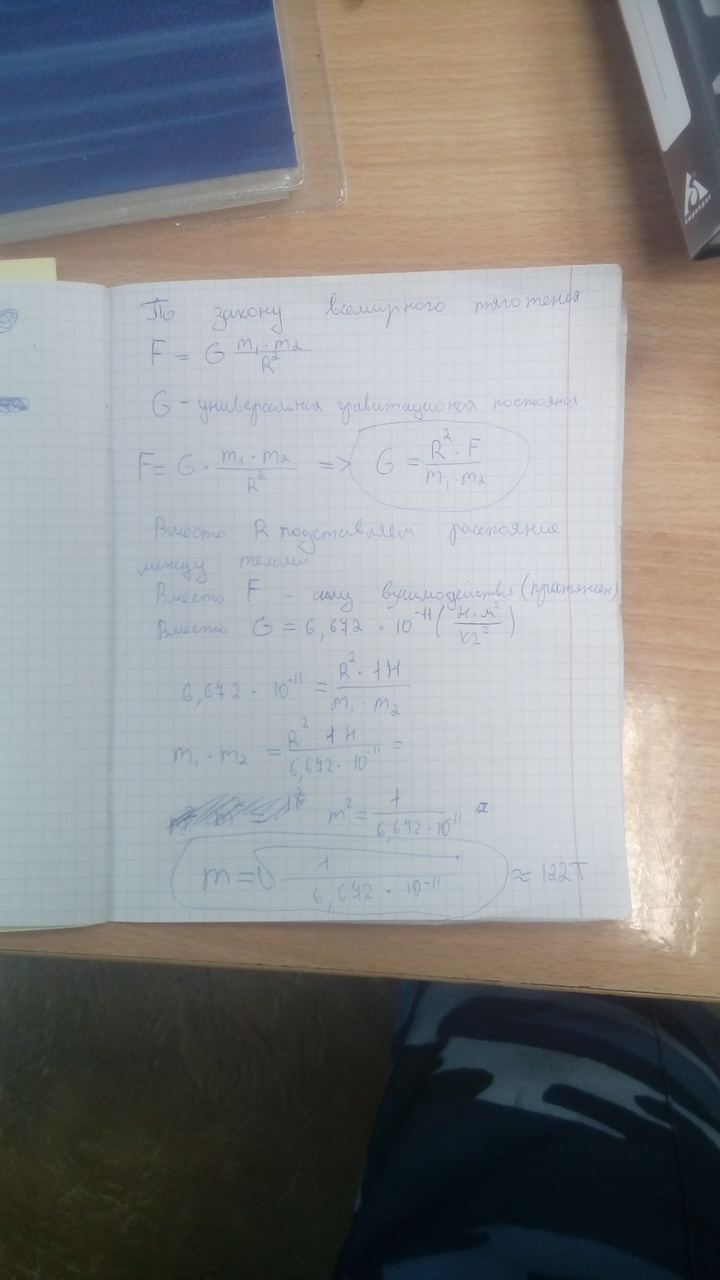 По закону всемирного тяготения
F = G m₁·m₂/R²
G - универсальная гравитационая постояная
F = G · m₁ · m₂/R² => G = R² · F/m₁ · m₂
Вместо R подставляем расстояние
между телами
Вместо F - силу взаимодействия (притяжен)
Вместо G = 6,672 · 10⁻¹¹ (Н·м²/кг²)
6,672 · 10⁻¹¹ = R² · 1Н/m₁ · m₂
m₁ · m₂ = R² · 1Н/6,672 · 10⁻¹¹ =
m² = 1/6,672·10⁻¹¹
m = √1/6,672 · 10⁻¹¹ ≈ 122т